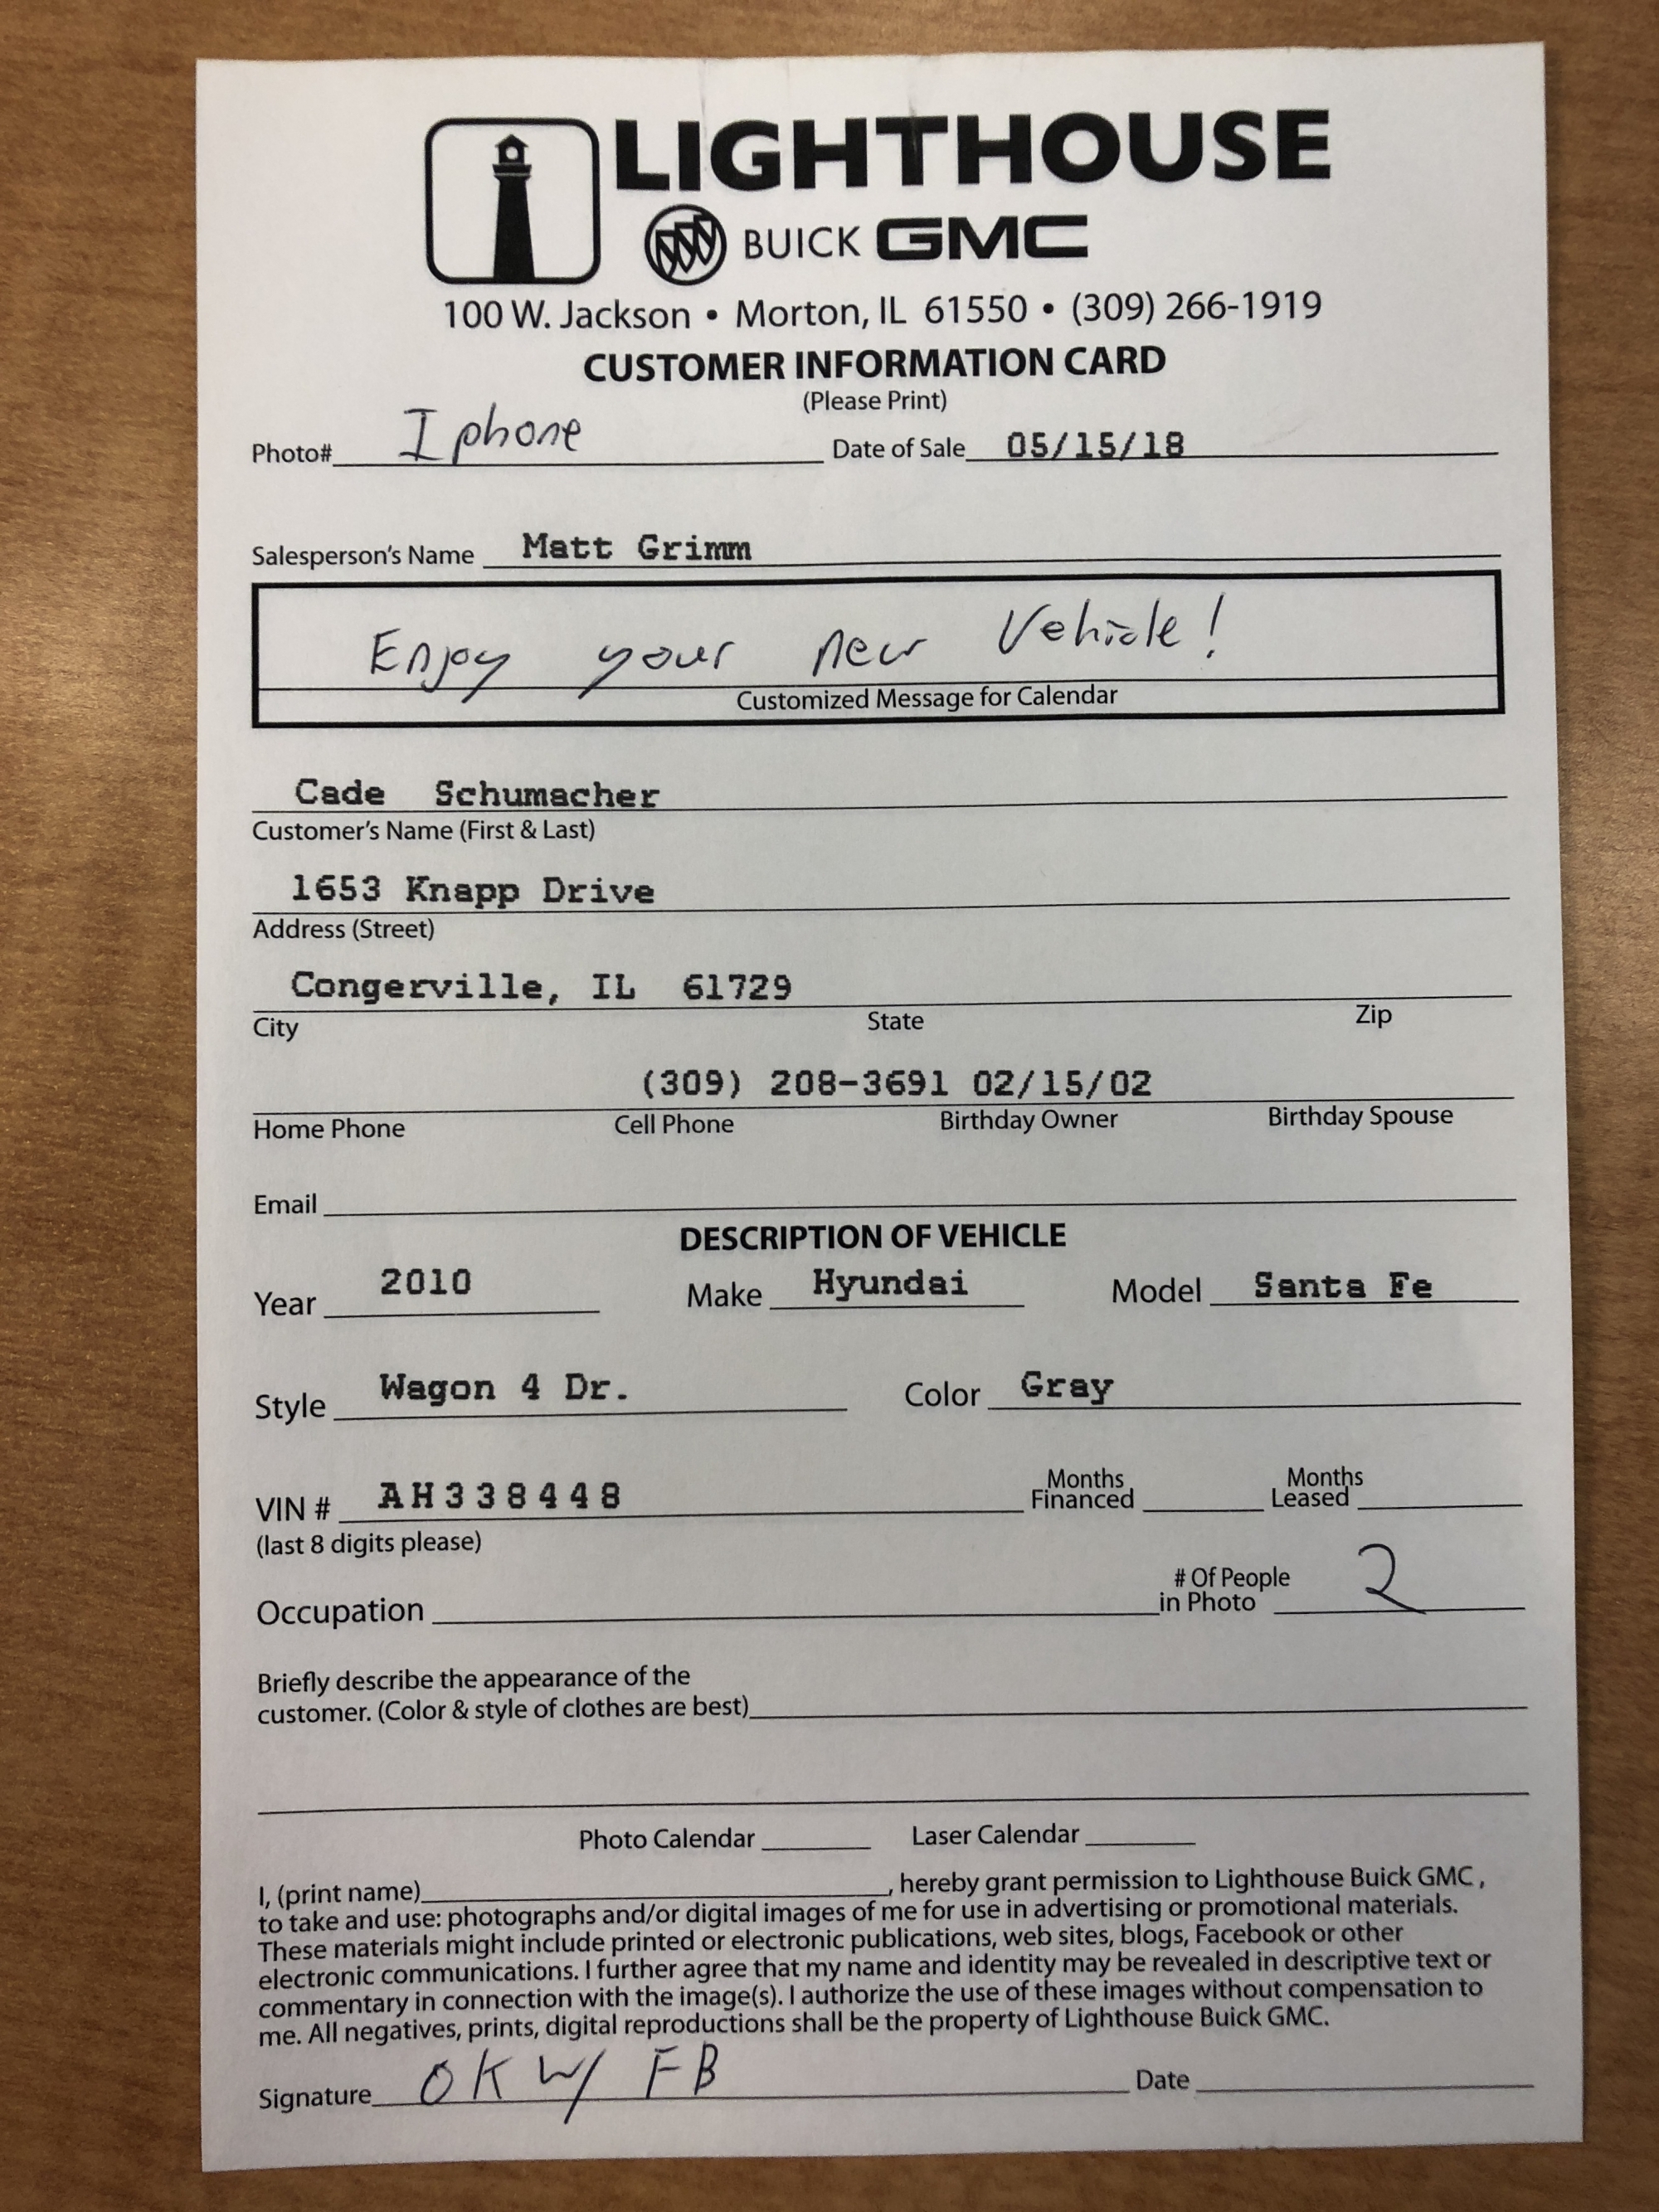 LIGHTHOUSE
BUICK GMC
100 W. Jackson • Morton, IL 61550 • (309) 266-1919
CUSTOMER INFORMATION CARD
(Please Print)
Photo# Iphone Date of Sale 05/15/18
Salesperson's Name Matt Grimm
Enjoy your new Vehicle!
Customized Message for Calendar
Cade Schumacher
Customer's Name (First & Last)
1653 Knapp Drive
Address (Street)
Congerville, IL 61729
City State Zip
(309) 208-3691 02/15/02
Home Phone Cell Phone Birthday Owner Birthday Spouse
Email
DESCRIPTION OF VEHICLE
Year 2010 Make Hyundai Model Santa Fe
Style Wagon 4 Dr. Color Gray
VIN # AH338448 Months Financed Months Leased
(last 8 digits please)
Occupation # Of People in Photo 2
Briefly describe the appearance of the
customer. (Color & style of clothes are best)
Photo Calendar Laser Calendar
I, (print name) , hereby grant permission to Lighthouse Buick GMC,
to take and use: photographs and/or digital images of me for use in advertising or promotional materials.
These materials might include printed or electronic publications, web sites, blogs, Facebook or other
electronic communications. I further agree that my name and identity may be revealed in descriptive text or
commentary in connection with the image(s). I authorize the use of these images without compensation to
me. All negatives, prints, digital reproductions shall be the property of Lighthouse Buick GMC.
Signature OK W/ FB Date